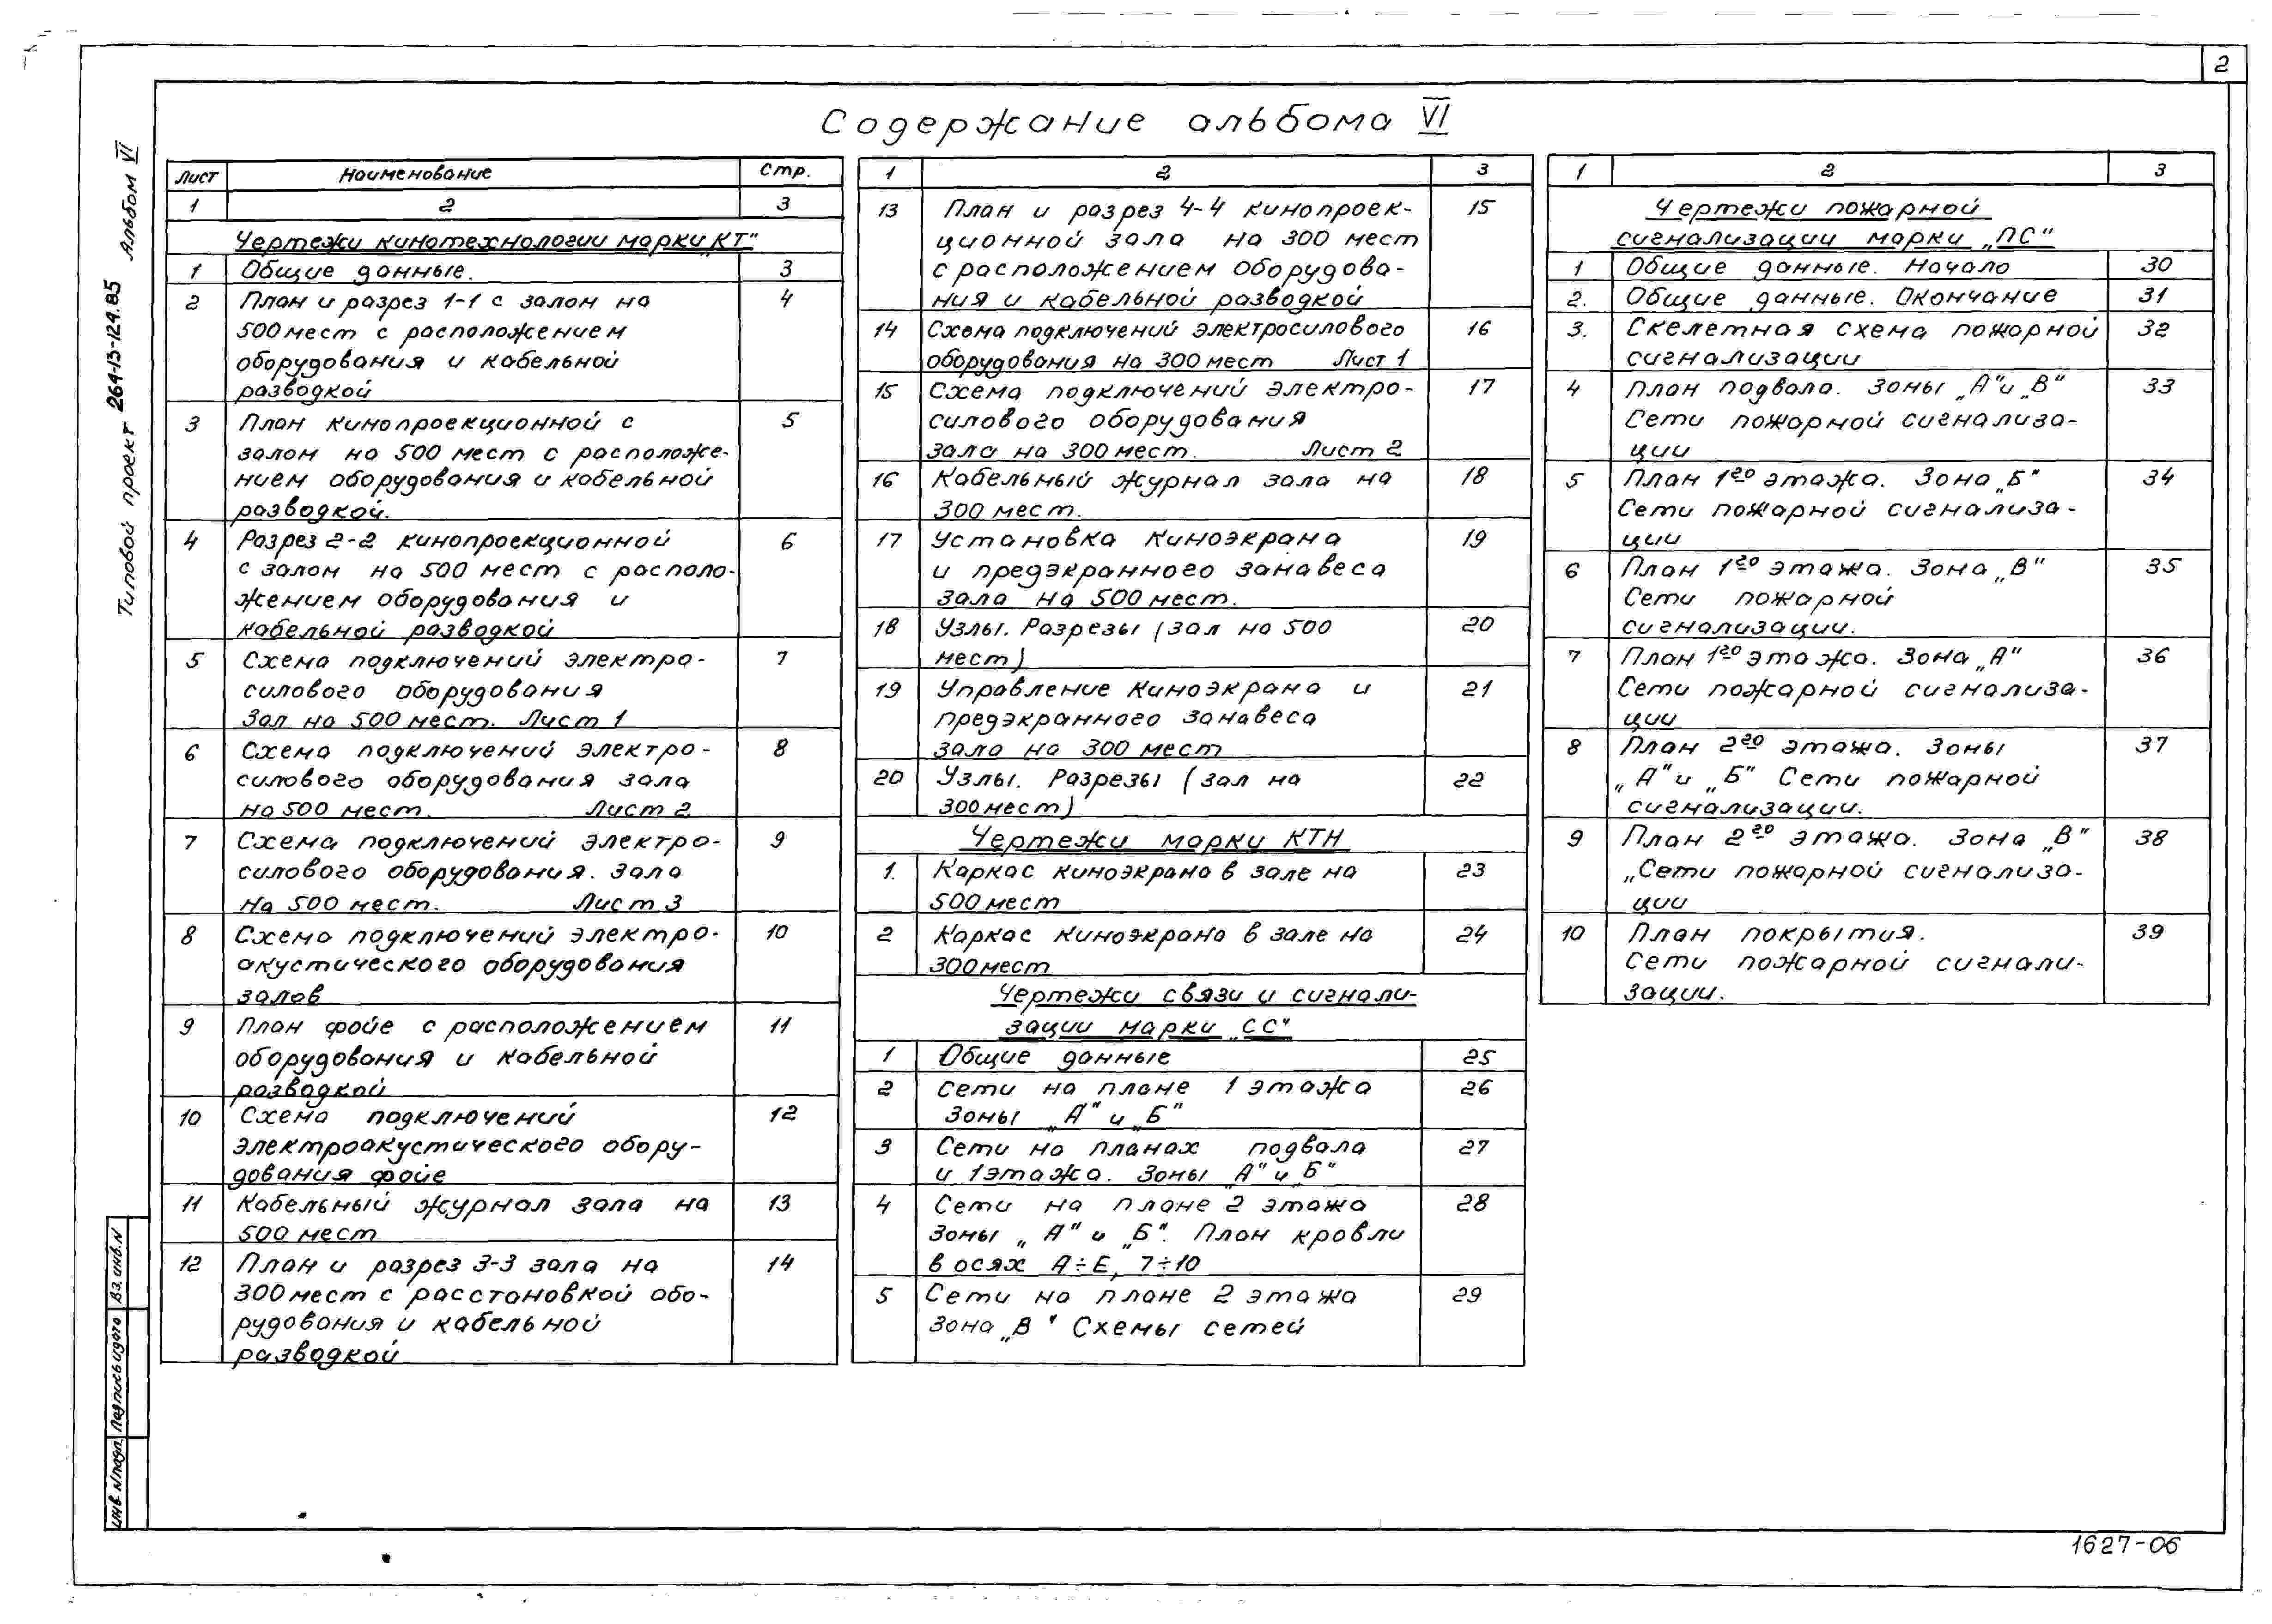 2
Содержание альбома VI
Типовой проект 264-13-124.85 Альбом VI
Лист Наименование Стр.
1 2 3
Чертежи кинотехнологии марки „КТ"
1 Общие данные. 3
2 План и разрез 1-1 с залом на 4
500 мест с расположением
оборудования и кабельной
разводкой
3 План кинопроекционной с 5
залом на 500 мест с расположе-
нием оборудования и кабельной
разводкой.
4 Разрез 2-2 кинопроекционной 6
с залом на 500 мест с располо-
жением оборудования и
кабельной разводкой
5 Схема подключений электро- 7
силового оборудования
Зал на 500 мест. Лист 1
6 Схема подключений электро- 8
силового оборудования зала
на 500 мест. Лист 2
7 Схема подключений электро- 9
силового оборудования. Зала
на 500 мест. Лист 3
8 Схема подключений электро- 10
акустического оборудования
залов
9 План фойе с расположением 11
оборудования и кабельной
разводкой
10 Схема подключений 12
электроакустического обору-
дования фойе
11 Кабельный журнал зала на 13
500 мест
12 План и разрез 3-3 зала на 14
300 мест с расстановкой обо-
рудования и кабельной
разводкой
1 2 3
13 План и разрез 4-4 кинопроек- 15
ционной зала на 300 мест
с расположением оборудова-
ния и кабельной разводкой
14 Схема подключений электросилового 16
оборудования на 300 мест Лист 1
15 Схема подключений электро- 17
силового оборудования
зала на 300 мест. Лист 2
16 Кабельный журнал зала на 18
300 мест.
17 Установка киноэкрана 19
и предэкранного занавеса
зала на 500 мест.
18 Узлы. Разрезы (зал на 500 20
мест)
19 Управление киноэкрана и 21
предэкранного занавеса
зала на 300 мест
20 Узлы. Разрезы (зал на 22
300 мест)
Чертежи марки КТН
1. Каркас киноэкрана в зале на 23
500 мест
2 Каркас киноэкрана в зале на 24
300 мест
Чертежи связи и сигнали-
зации марки „СС"
1 Общие данные 25
2 Сети на плане 1 этажа 26
Зоны „А" и „Б"
3 Сети на планах подвала 27
и 1 этажа. Зоны „А" и „Б"
4 Сети на плане 2 этажа 28
Зоны „А" и „Б". План кровли
в осях А÷Е, 7÷10
5 Сети на плане 2 этажа 29
Зона „В" Схемы сетей
1 2 3
Чертежи пожарной
сигнализации марки „ПС"
1 Общие данные. Начало 30
2. Общие данные. Окончание 31
3. Скелетная схема пожарной 32
сигнализации
4 План подвала. Зоны „А" и „В" 33
Сети пожарной сигнализа-
ции
5 План 1го этажа. Зона „Б" 34
Сети пожарной сигнализа-
ции
6 План 1го этажа. Зона „В" 35
Сети пожарной
сигнализации.
7 План 1го этажа. Зона „А" 36
Сети пожарной сигнализа-
ции
8 План 2го этажа. Зоны 37
„А" и „Б" Сети пожарной
сигнализации.
9 План 2го этажа. Зона „В" 38
„Сети пожарной сигнализа-
ции
10 План покрытия. 39
Сети пожарной сигнали-
зации.
Инв. N подл. Подпись и дата Вз. инв. N
1627-06